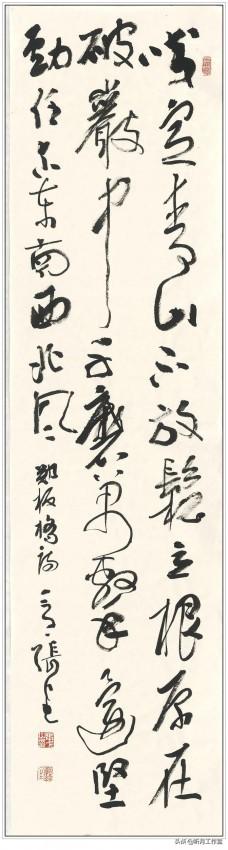 咬定青山不放鬆立根原在
破巖中千磨萬擊還堅
勁任尔東南西北風
鄭板橋詩 張
头条@听月工作室